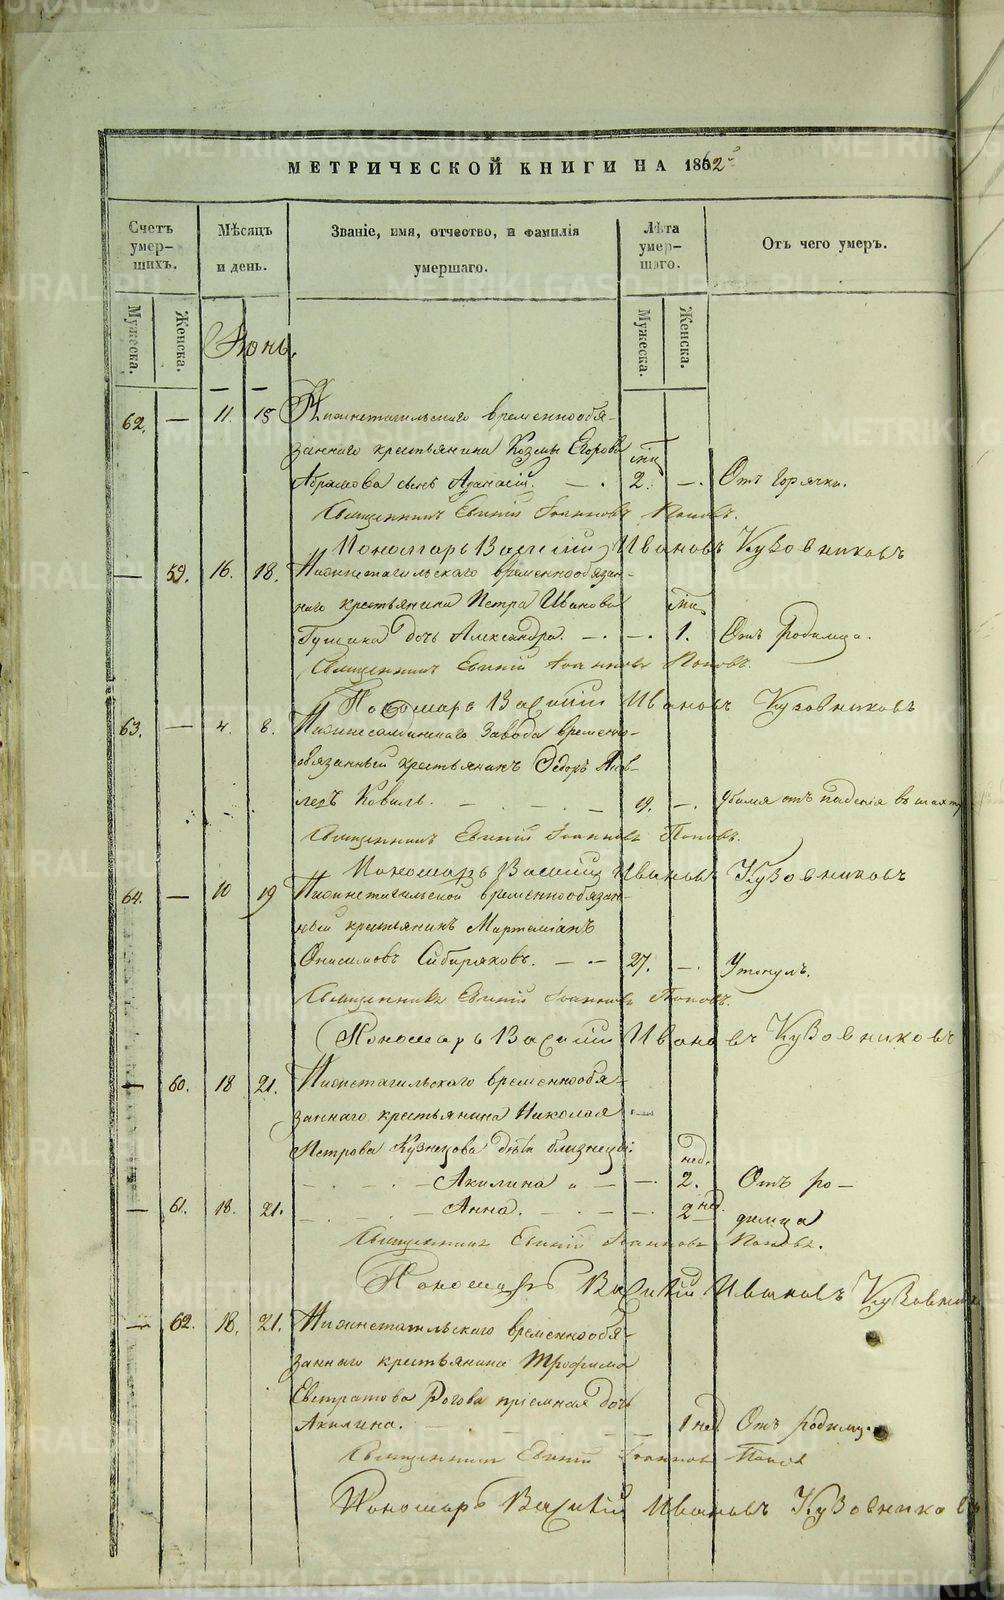 МЕТРИЧЕСКОЙ КНИГИ НА 1862
Счетъ умер-шихъ.
Мѣсяцъ и день.
Званіе, имя, отчество, и фамилія умершаго.
Лѣта умер-шаго.
Отъ чего умеръ.
Мужеска.
Женска.
Мужеска.
Женска.
Іюнь.
62. — 11. 15 Нижнетагильскаго временнообя-
заннаго крестьянина Козмы Егорова
Абрамова сынъ Аѳанасій. — 2. —. Отъ горячки.
Священникъ Іоанновъ Поповъ.
Пономарь Василій Ивановъ Кузовниковъ
— 59. 16. 18. Нижнетагильскаго временнообязан-
наго крестьянина Петра Иванова
дочь Александра. —. —. 1. Отъ родимца.
Священникъ Іоанновъ Поповъ.
Пономарь Василій Ивановъ Кузовниковъ
63. — 4. 8. Нижнесалдинскаго завода временно-
обязанный крестьянинъ Ѳедоръ
— 19. —. Убился отъ паденія въ шахту
Священникъ Іоанновъ Поповъ.
Пономарь Василій Ивановъ Кузовниковъ
64. — 10 19 Нижнетагильской временнообязан-
ный крестьянинъ Мартеміанъ
Онисимовъ Сибиряковъ. — — 27. —. Утонулъ.
Священникъ Іоанновъ Поповъ.
Пономарь Василій Ивановъ Кузовниковъ
— 60. 18 21. Нижнетагильскаго временнообя-
заннаго крестьянина Николая
Петрова Кузнецова дѣти близнецы:
нед.
Акилина — —. 2. Отъ ро-
— 61. 18. 21. Анна. — 2 нед. димца
Священникъ Іоанновъ Поповъ.
Пономарь Василій Ивановъ Кузовник
— 62. 18. 21. Нижнетагильскаго временнообя-
заннаго крестьянина Трофима
Евстратова Рогова пріемная дочь
Акилина. 1 нед. Отъ родимц.
Священникъ Іоанновъ Поповъ
Пономарь Василій Ивановъ Кузовниковъ
METRIKI.GASO-URAL.RU